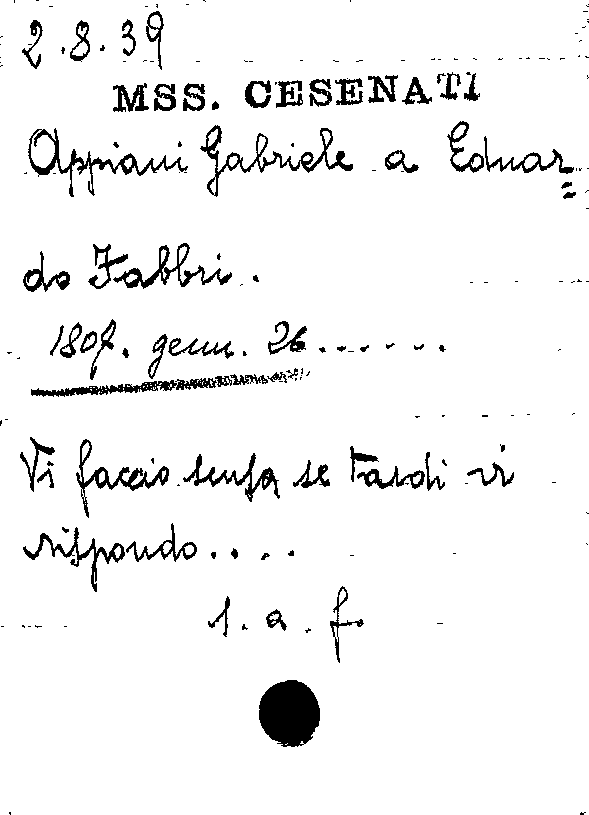 2.8.39
MSS. CESENATI
Appiani Gabriele a Eduar=
do Fabbri.
1807. genn. 26......
Vi faccio scusa se tardi vi
rispondo....
1. a. f.